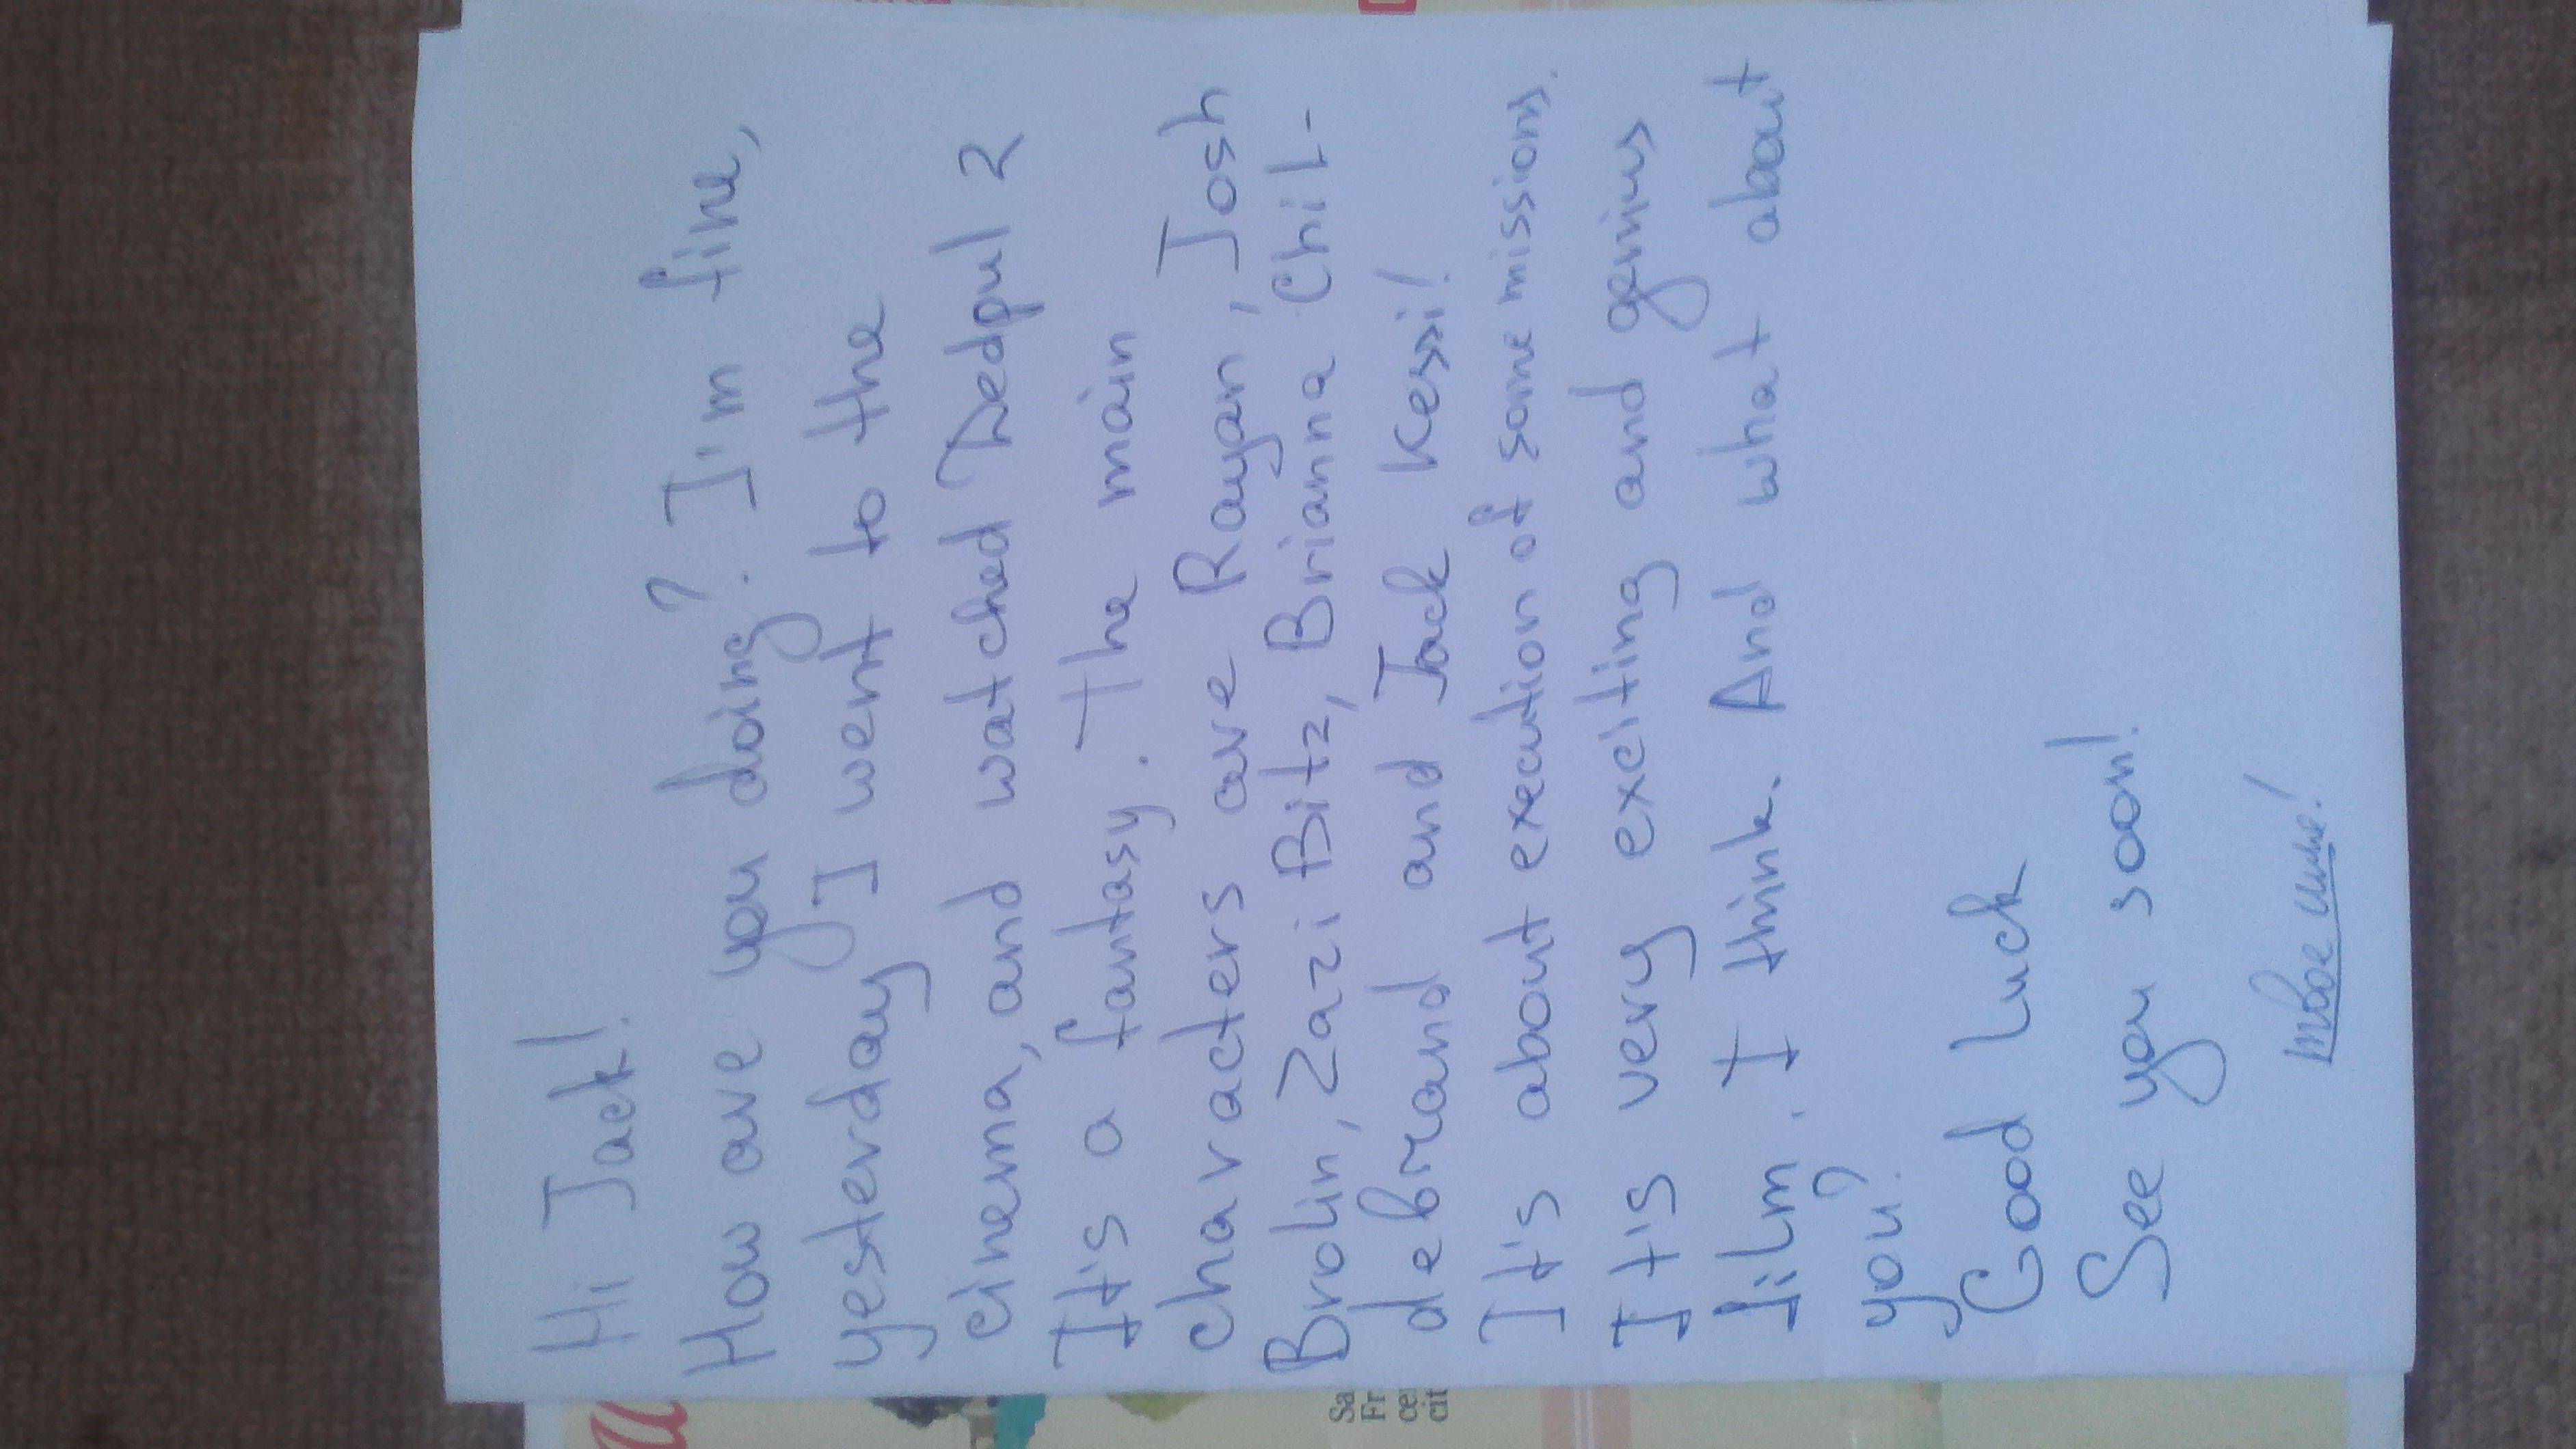 Hi Jack!
How are you doing? I'm fine,
yesterday I went to the
cinema, and watched Dedpul 2
It's a fantasy. The main
characters are Rayan, Josh
Brolin, Zazi Bitz, Brianna Chil-
debrand and Jack Kessi!
It's about execution of some missions.
It's very exciting and genius
film. I think. And what about
you?
Good luck
See you soon!
твое имя!
Sa
Fr
cer
cit